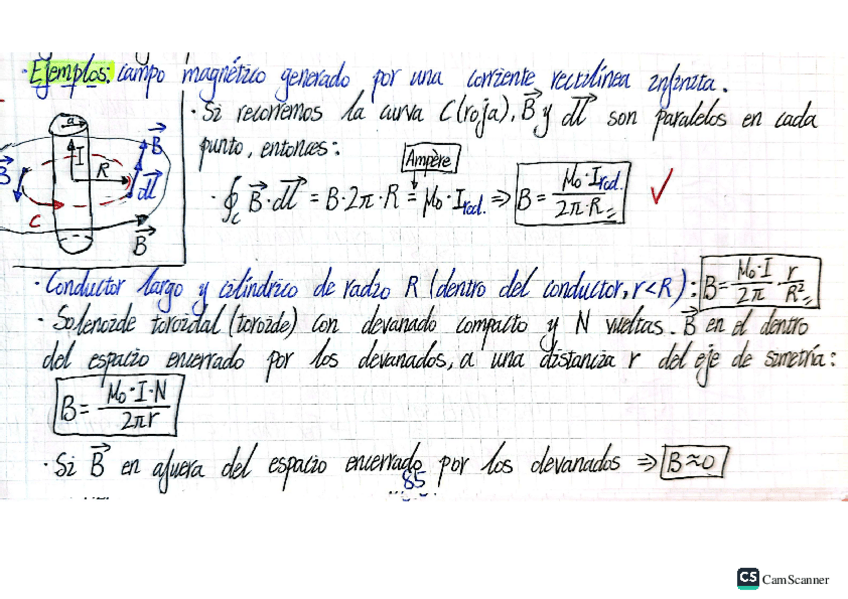 · Ejemplos: campo magnético generado por una corriente rectilínea infinita.
· Si recorremos la curva C (roja), B⃗ y dl⃗ son paralelos en cada
punto, entonces:
Ampère
· ∮c B⃗·dl⃗ = B·2π·R = μ₀·Irod. ⇒ B = μ₀·Irod. / 2π·R ✓
a
I
R
B⃗
dl⃗
B⃗
C
B⃗
· Conductor largo y cilíndrico de radio R (dentro del conductor, r<R): B = μ₀·I / 2π · r / R²
· Solenoide toroidal (toroide) con devanado compacto y N vueltas. B⃗ en el dentro
del espacio encerrado por los devanados, a una distancia r del eje de simetría:
B = μ₀·I·N / 2πr
· Si B⃗ en afuera del espacio encerrado por los devanados ⇒ B≈0
85
CS CamScanner